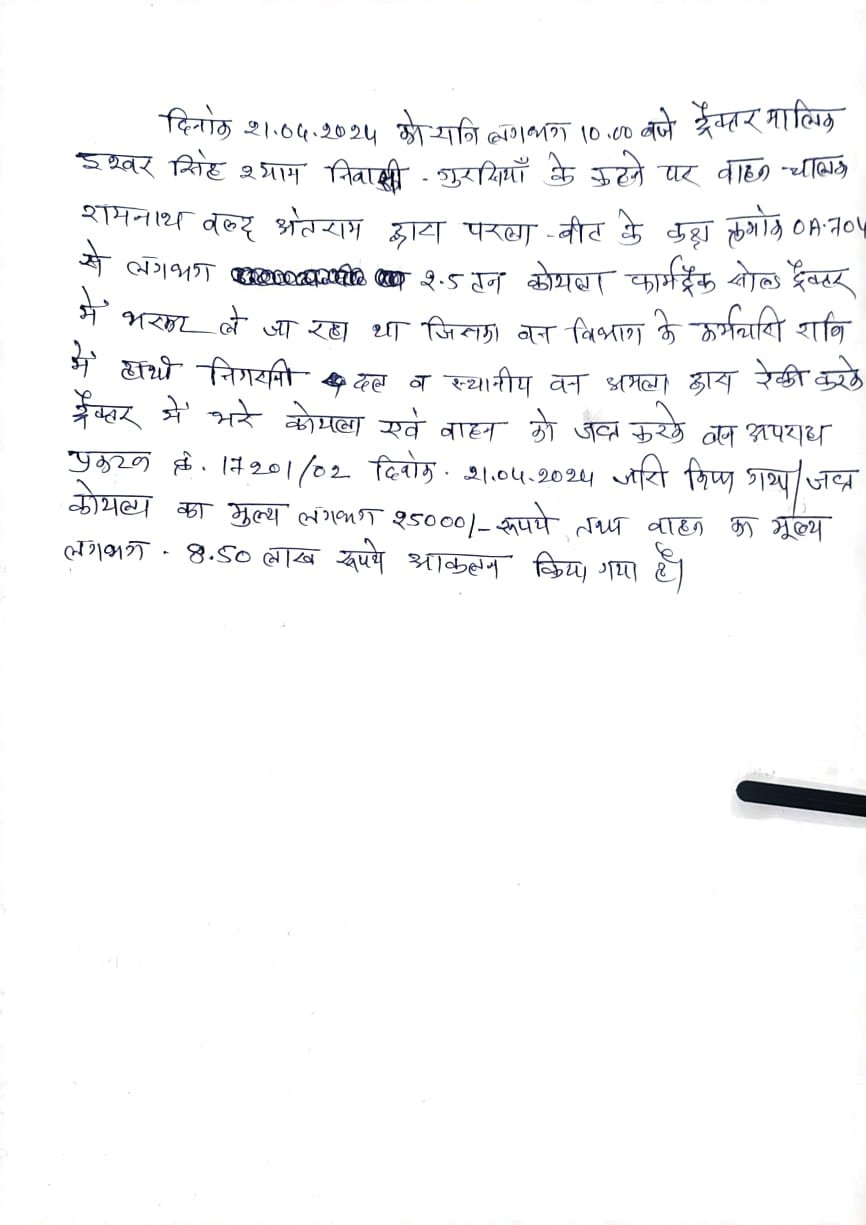 दिनांक 21.04.2024 को रात्रि लगभग 10.00 बजे ट्रैक्टर मालिक
ईश्वर सिंह श्याम निवासी - गुरसियाँ के कहने पर वाहन चालक
रामनाथ वल्द अंतराम द्वारा परला - बीट के कक्ष क्रमांक OA.704
से लगभग 2.5 टन कोयला फार्मट्रैक सोल्ड ट्रैक्टर
में भरकर ले जा रहा था जिसका वन विभाग के कर्मचारी रात्रि
में हाथी निगरानी दल व स्थानीय वन अमला द्वारा रेकी करके
ट्रैक्टर में भरे कोयला एवं वाहन को जप्त करके वन अपराध
प्रकरण क्रं. 17201/02 दिनांक. 21.04.2024 जारी किया गया/जप्त
कोयला का मुल्य लगभग 25000/- रूपये तथा वाहन का मूल्य
लगभग - 8.50 लाख रूपये आकलन किया गया है।